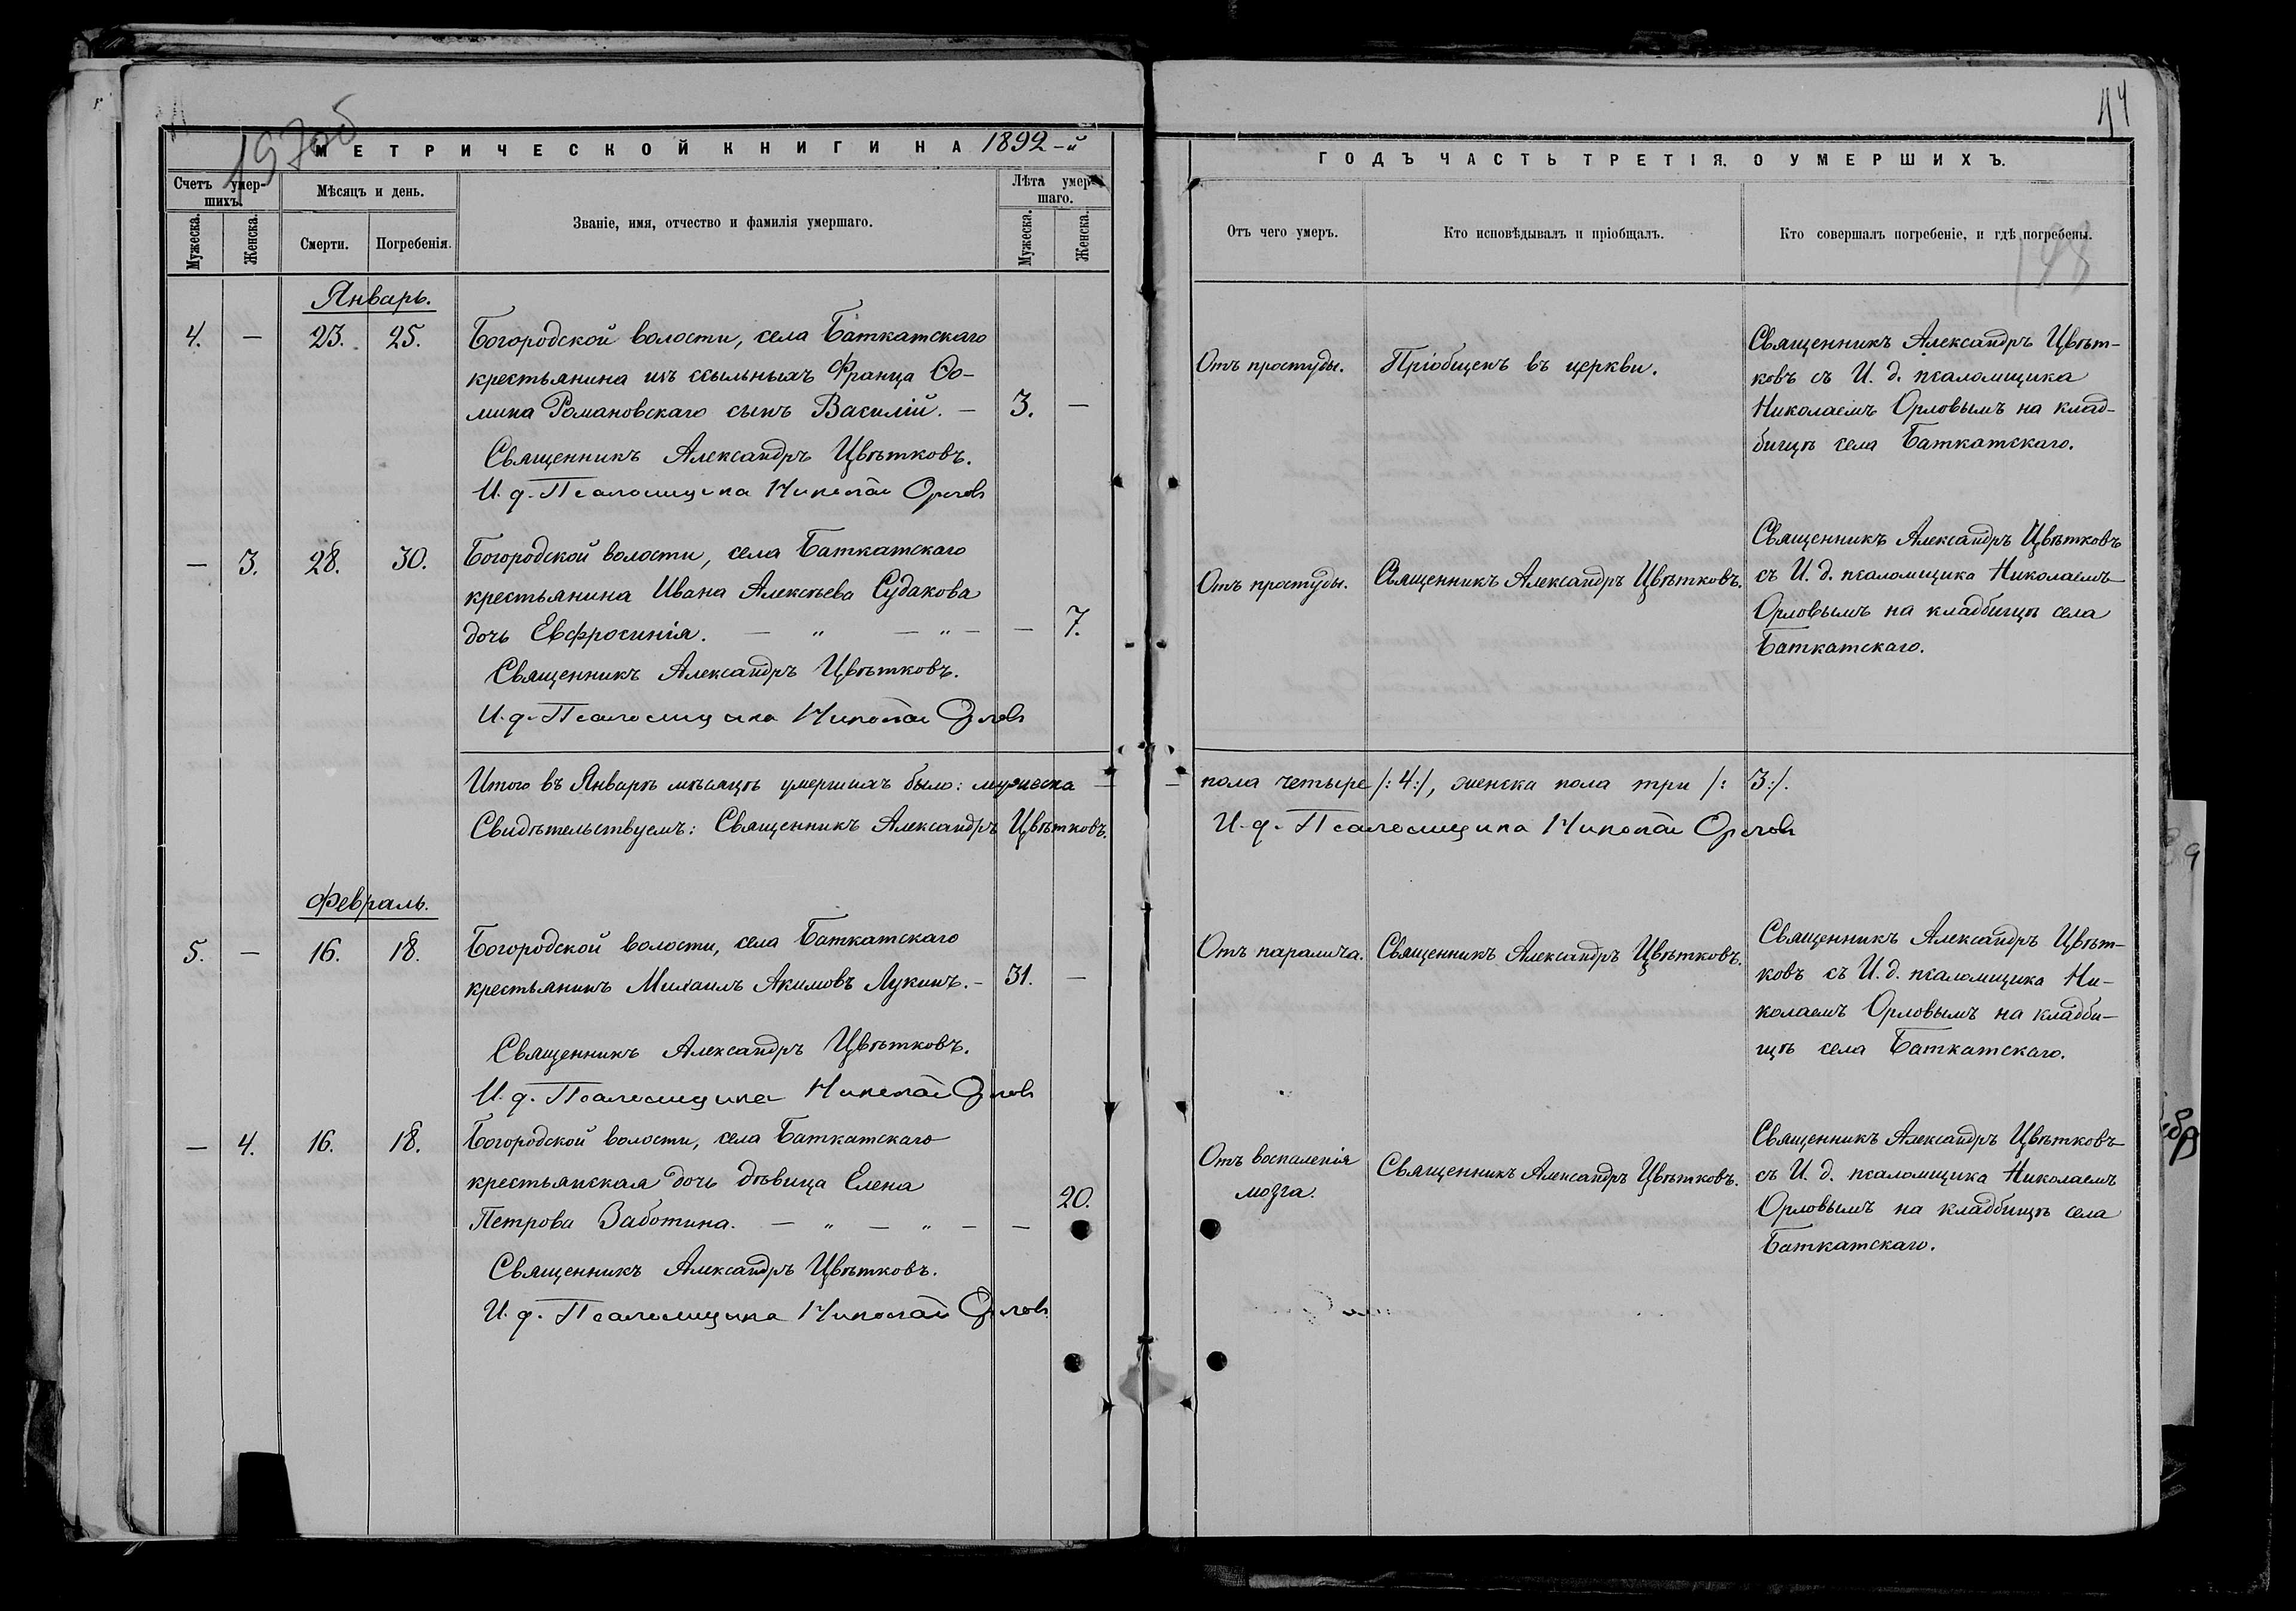 197об
МЕТРИЧЕСКОЙ КНИГИ НА 1892-й
Счетъ умер-
шихъ.
Мѣсяцъ и день.
Званіе, имя, отчество и фамилія умершаго.
Лѣта умер-
шаго.
Мужеска.
Женска.
Смерти.
Погребенія.
Мужеска.
Женска.
Январь.
4. — 23. 25.
Богородской волости, села Баткатскаго
крестьянина изъ ссыльныхъ Франца Ѳо-
мина Романовскаго сынъ Василій. — 3. —
Священникъ Александръ Цвѣтковъ.
И. д. Псаломщика Николай Орловъ
— 3. 28. 30.
Богородской волости, села Баткатскаго
крестьянина Ивана Алексѣева Судакова
дочь Евфросинія. — „ — „ — — 7.
Священникъ Александръ Цвѣтковъ.
И. д. Псаломщика Николай Орловъ
Итого въ Январѣ мѣсяцѣ умершихъ было: мужеска —
Свидѣтельствуемъ: Священникъ Александръ Цвѣтковъ.
Февраль.
5. — 16. 18.
Богородской волости, села Баткатскаго
крестьянинъ Михаилъ Акимовъ Лукинъ. — 31. —
Священникъ Александръ Цвѣтковъ.
И. д. Псаломщика Николай Орловъ
— 4. 16. 18.
Богородской волости, села Баткатскаго
крестьянская дочь дѣвица Елена
Петрова Заботина. — „ — „ — — 20.
Священникъ Александръ Цвѣтковъ.
И. д. Псаломщика Николай Орловъ
44
ГОДЪ ЧАСТЬ ТРЕТІЯ. О УМЕРШИХЪ.
Отъ чего умеръ.
Кто исповѣдывалъ и пріобщалъ.
Кто совершалъ погребеніе, и гдѣ погребены.
198
Отъ простуды.
Пріобщенъ въ церкви.
Священникъ Александръ Цвѣт-
ковъ съ И. д. псаломщика
Николаемъ Орловымъ на клад-
бищѣ села Баткатскаго.
Отъ простуды.
Священникъ Александръ Цвѣтковъ.
Священникъ Александръ Цвѣтковъ
съ И. д. псаломщика Николаемъ
Орловымъ на кладбищѣ села
Баткатскаго.
— пола четыре /: 4 :/, женска пола три /: 3 :/.
И. д. Псаломщика Николай Орловъ
Отъ паралича.
Священникъ Александръ Цвѣтковъ.
Священникъ Александръ Цвѣт-
ковъ съ И. д. псаломщика Ни-
колаемъ Орловымъ на кладби-
щѣ села Баткатскаго.
Отъ воспаленія
мозга.
Священникъ Александръ Цвѣтковъ.
Священникъ Александръ Цвѣтковъ
съ И. д. псаломщика Николаемъ
Орловымъ на кладбищѣ села
Баткатскаго.